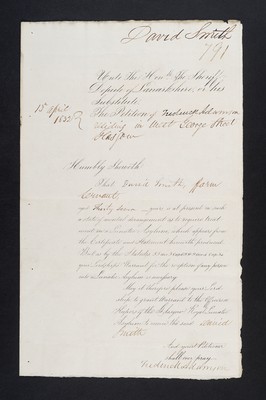 David Smith
791
Unto The Honble The Sheriff
Depute of Lanarkshire, or his
Substitute
15 April
The Petition of Frederick Adamson
residing in West George Street
Glasgow
Humbly Sheweth
That David Smith, Farm
Servant,
is at present in such
a state of mental derangement as to require treat
ment in a Lunatic Asylum, which appears from
the Certificate and Statement herewith produced
That as by the Statutes
your Lordship's Warrant for the reception of any person
into a Lunatic Asylum is necessary
May it therefore please your Lord
ship to grant Warrant to the
Keepers of the Glasgow Royal Lunatic
Asylum to receive the said David
Smith
And your Petitioner
shall ever pray
Frederick Adamson